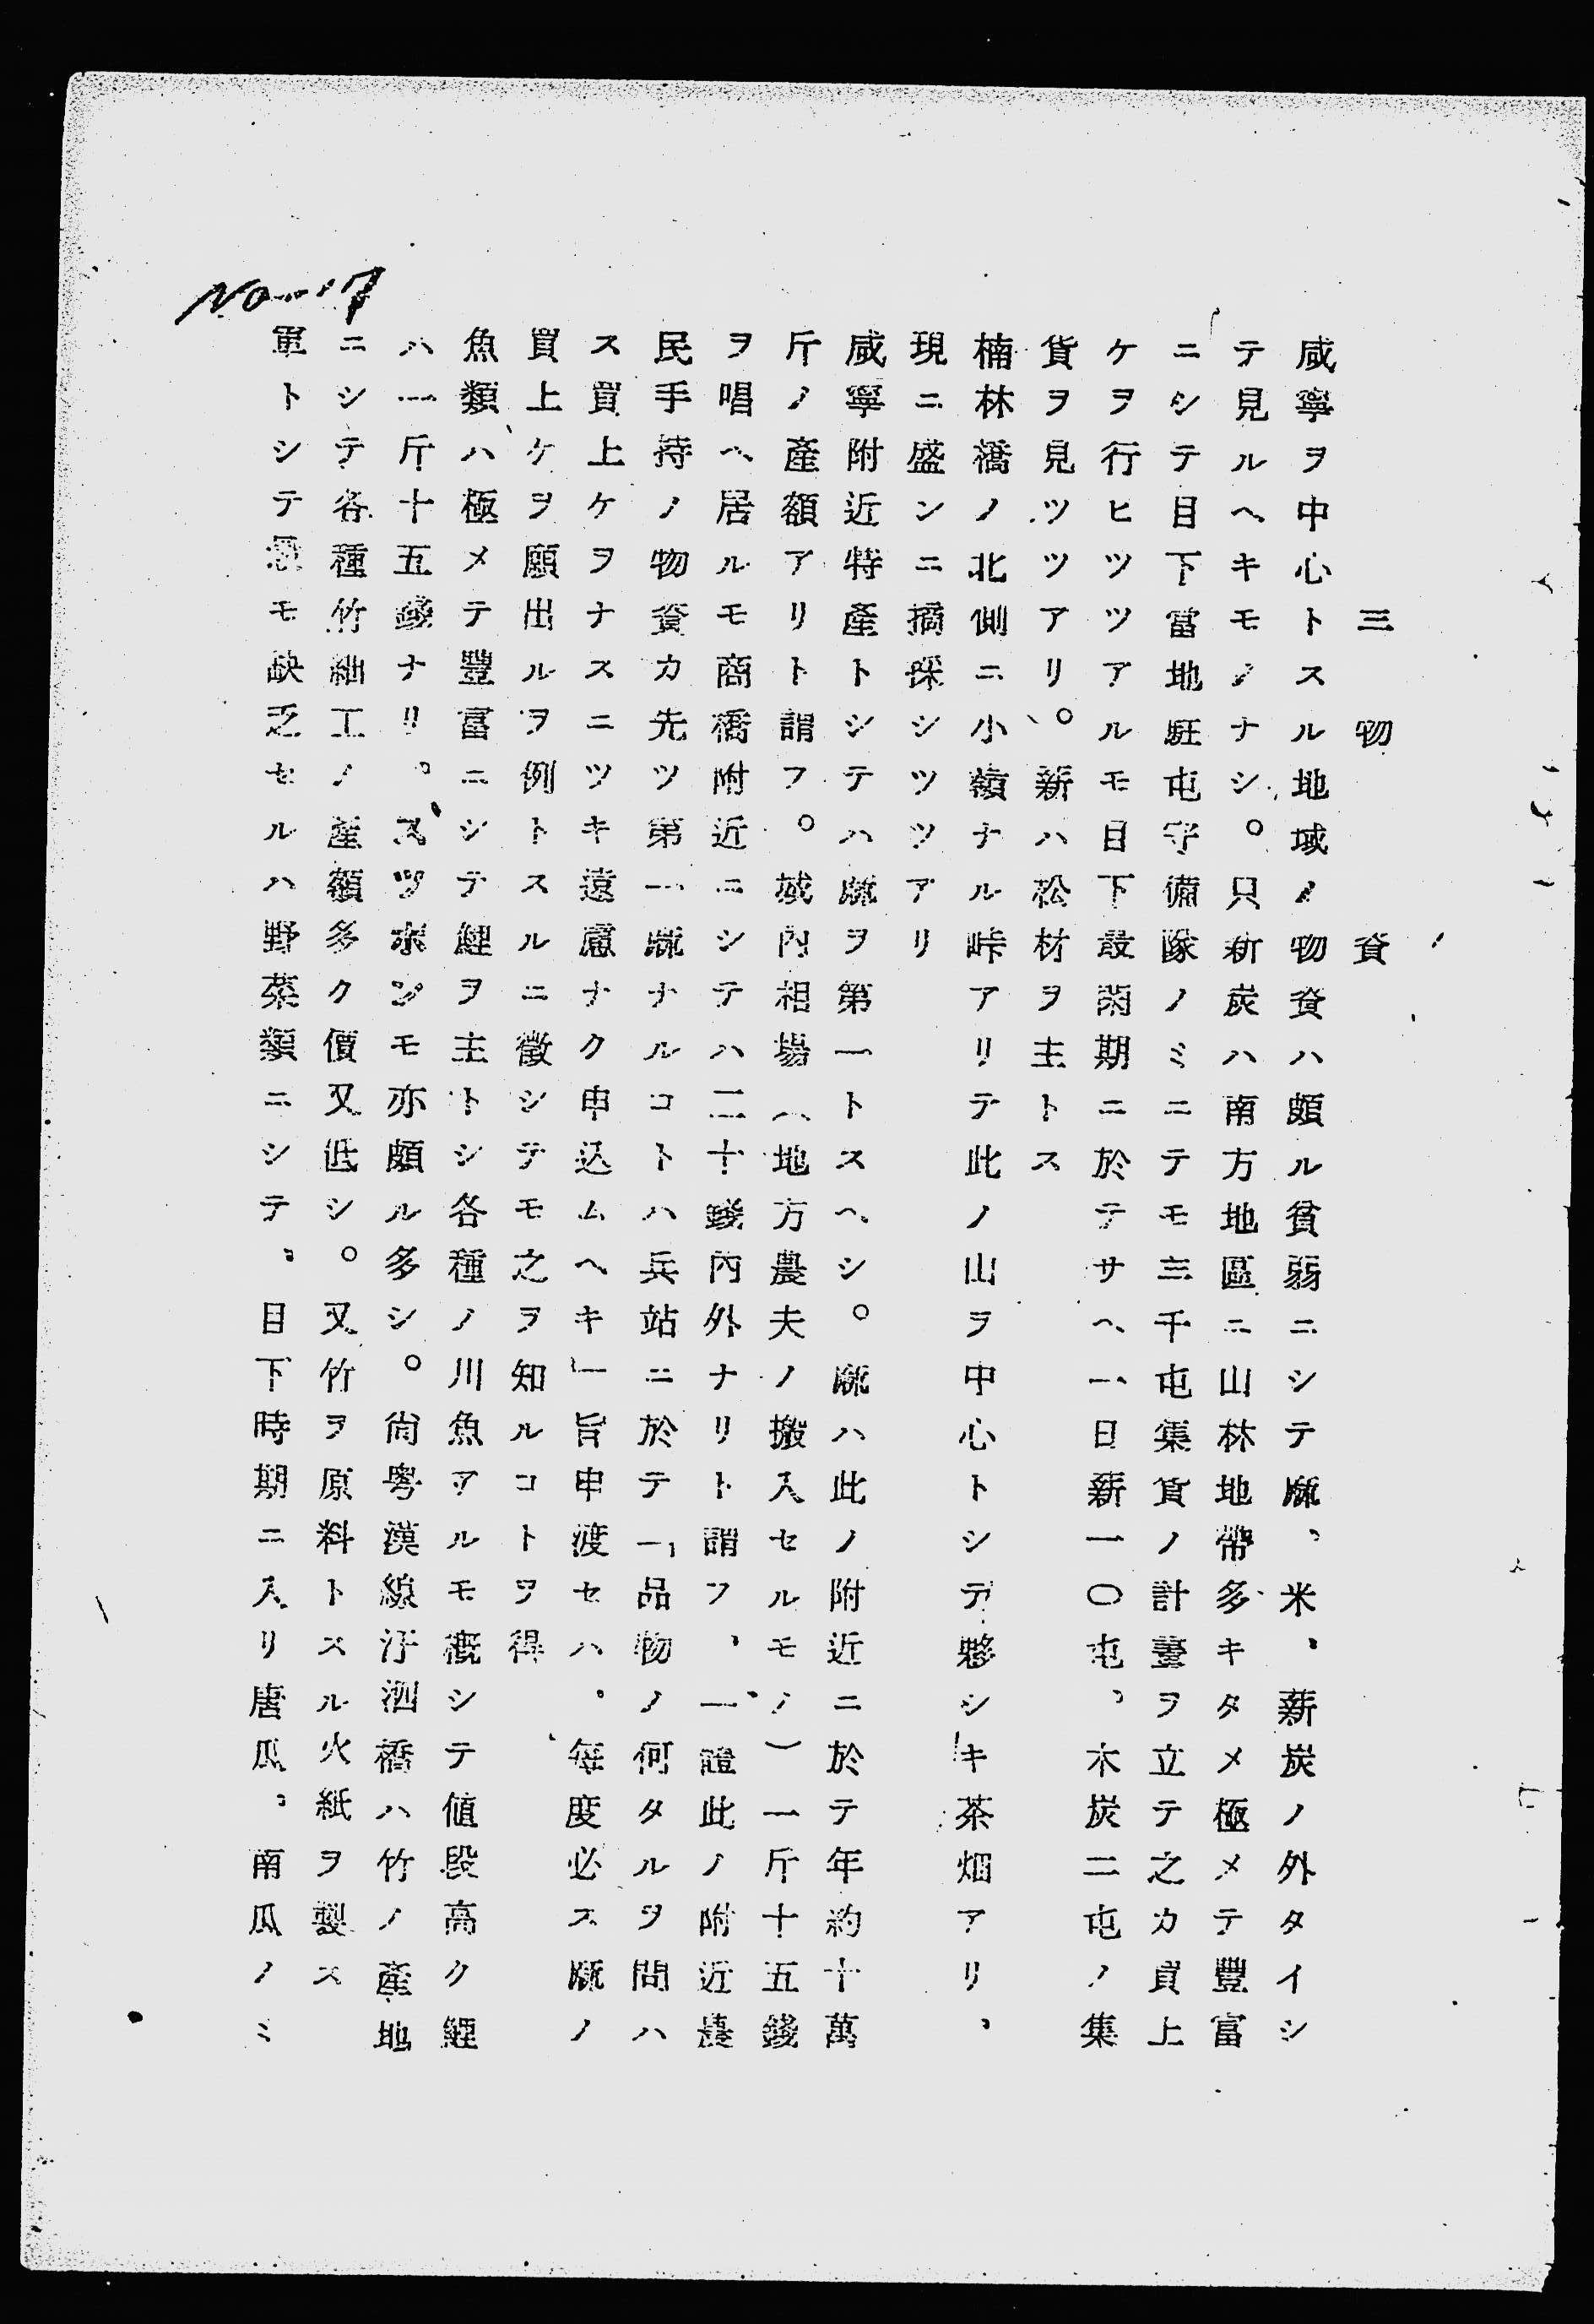 三　物　資
咸寧ヲ中心トスル地域ノ物資ハ頗ル貧弱ニシテ麻、米、薪炭ノ外タイシ
テ見ルヘキモノナシ。只薪炭ハ南方地區ニ山林地帶多キタメ極メテ豐富
ニシテ目下當地駐屯守備隊ノミニテモ三千屯集貨ノ計畫ヲ立テ之カ買上
ケヲ行ヒツツアルモ目下最閑期ニ於テサヘ一日薪一〇屯、木炭二屯ノ集
貨ヲ見ツツアリ。薪ハ松材ヲ主トス
楠林橋ノ北側ニ小嶺ナル峠アリテ此ノ山ヲ中心トシテ夥シキ茶畑アリ、
現ニ盛ンニ摘採シツツアリ
咸寧附近特產トシテハ麻ヲ第一トスヘシ。麻ハ此ノ附近ニ於テ年約十萬
斤ノ產額アリト謂フ。城內相場（地方農夫ノ搬入セルモノ）一斤十五錢
ヲ唱ヘ居ルモ商橋附近ニシテハ二十錢內外ナリト謂フ、一證此ノ附近農
民手持ノ物資カ先ツ第一麻ナルコトハ兵站ニ於テ「品物ノ何タルヲ問ハ
ス買上ケヲナスニツキ遠慮ナク申込ムヘキ」旨申渡セハ。每度必ス麻ノ
買上ケヲ願出ルヲ例トスルニ徵シテモ之ヲ知ルコトヲ得
魚類ハ極メテ豐富ニシテ鯉ヲ主トシ各種ノ川魚アルモ槪シテ値段高ク鯉
ハ一斤十五錢ナリ。スツポンモ亦頗ル多シ。尙粤漢線汀泗橋ハ竹ノ產地
ニシテ各種竹細工ノ產額多ク價又低シ。又竹ヲ原料トスル火紙ヲ製ス
軍トシテ最モ缺乏セルハ野菜類ニシテ、目下時期ニ入リ唐瓜、南瓜ノミ
NO-17